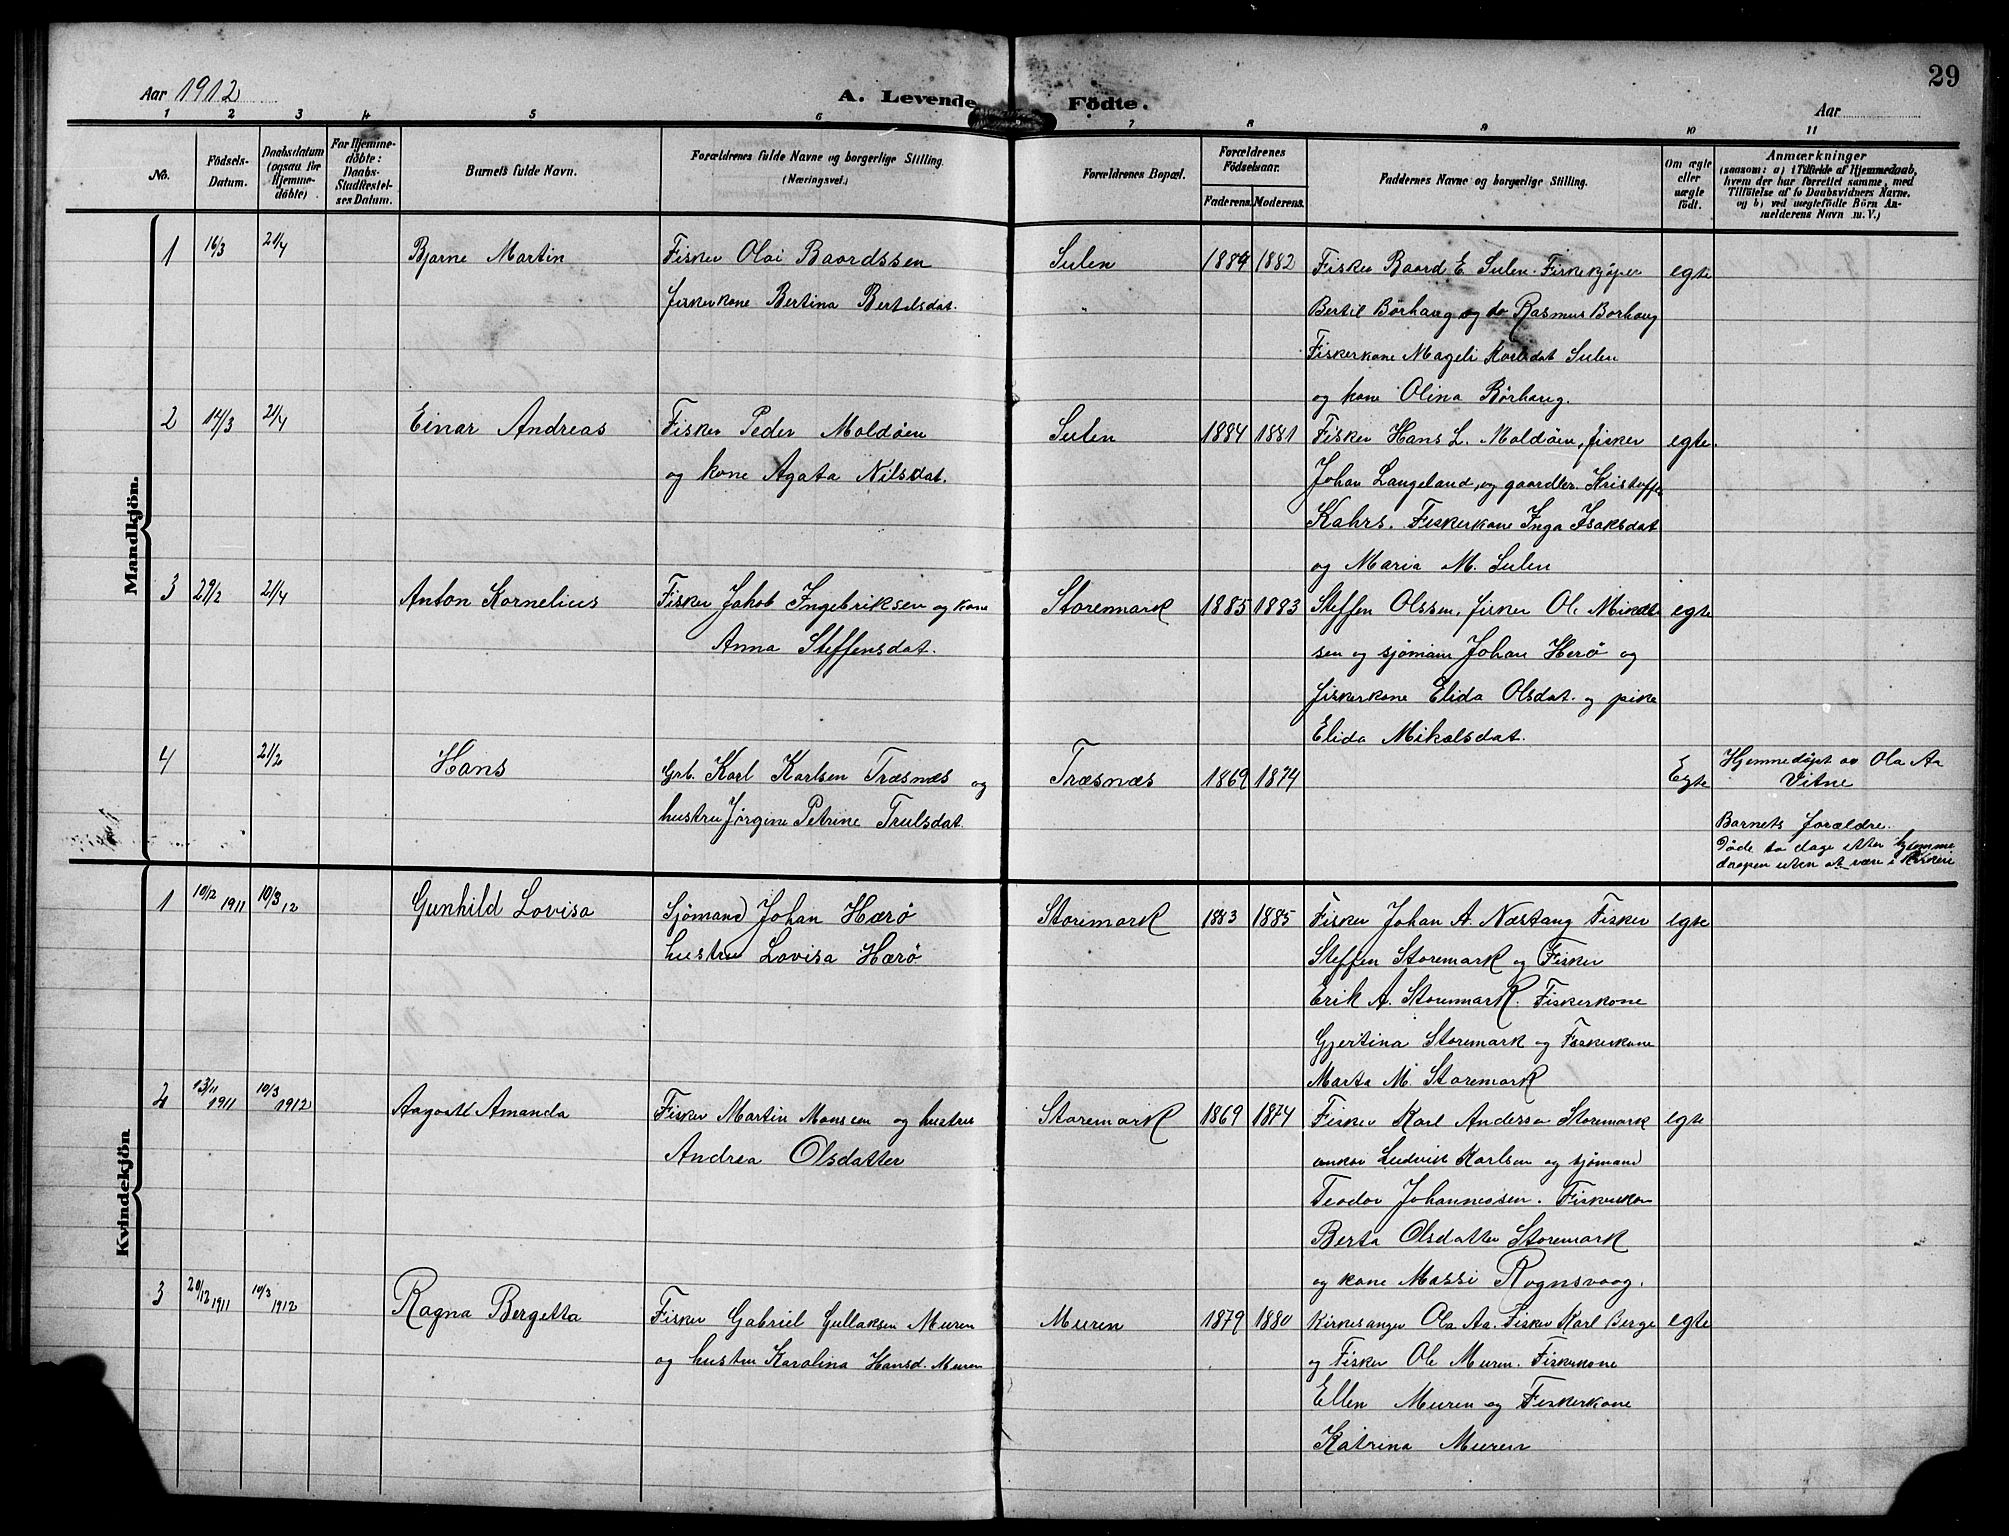 29
Aar 1912
A. Levende Födte.
Aar
1 2 3 4 5 6 7 8 9 10 11
No.
Födsels-Datum.
Daabsdatum (ogsaa for Hjemme-döbte)
For Hjemme-döbte: Daabs-Stadfæstelses Datum.
Barnets fulde Navn.
Forældrenes fulde Navne og borgerlige Stilling.
(Næringsvei.)
Forældrenes Bopæl.
Forældrenes Födselsaar.
Faderens. Moderens.
Faddernes Navne og borgerlige Stilling.
Om ægte eller uægte födt.
Anmærkninger
(saasom: a) i Tilfælde af Hjemmedaab,
hvem der har forrettet samme, med
Tilföielse af to Daabsvidners Navne.
og b) ved uægtefödte Börn An-
melderens Navn m. V.)
Mandkjön.
1 16/3 21/4 Bjarne Martin Fisker Olai Baardssen Sulen 1884 1882 Fisker Baard E. Sulen. Fiskekjøper egte
fiskerkone Bertina Bertelsdat. " Bertil Børhaug og do Rasmus Børhaug
Fiskerkone Mageli Karlsdat Sulen
og kone Olina Børhaug.
2 14/3 21/4 Einar Andreas Fisker Peder Moldøen Sulen 1884 1881 Fisker Hans L. Moldøen, fisker egte.
og kone Agata Nilsdat. Johan Langeland, og gaardbr. Kristoffer
Kahrs. Fiskerkone Inga Isaksdat
og Maria M. Sulen
3 29/2 21/4 Anton Kornelius Fisker Jakob Ingebriksen og kone Storemark 1885 1883 Steffen Olssen, fisker Ol. Mikal egte
Anna Steffensdat. sen og sjømann Johan Herø og
fiskerkone Elida Olsdat. og pike
Elida Mikalsdat.
4 21/2 Hans Grb. Karl Karlsen Træsnæs og Træsnæs 1869 1874 Egte Hjemmedøpt av Ola Aa
hustru Jørgine Petrine Trulsdat. Vitne
Barnets forældre.
Døde to dage etter hjemme
daapen uten at være i Kirken
Kvindekjön
1 10/12 1911 10/3 12 Gunhild Lovisa Sjømand Johan Hærø Storemark 1883 1885 Fisker Johan A. Næstang Fisker egte
hustru Lovisa Hærø Steffen Storemark og Fisker
Erik A. Storemark. Fiskerkone
Gjertina Storemark og Fiskerkone
Marta M. Storemark
2 13/11 1911 10/3 1912 Aagoatt Amanda Fisker Martin Monsen og hustru Storemark 1869 1874 Fisker Karl Anderse Storemark egte
Andrea Olsdatter enkem Ludvik Karlsen og sjømand
Teodor Johannessen. Fiskerkon
Berta Olsdatter Storemark
og kone Massi Rognsvaag.
3 20/12 1911 10/3 1912 Ragna Bergetta Fisker Gabriel Gullaksen Muren Muren 1879 1880 Kirkesanger Ola Aa. Fisker Karl Berge egte
og hustru Karolina Hansd. Muren og Fisker Ole Muren. Fiskerkone
Ellen Muren og Fiskerkone
Katrina Muren